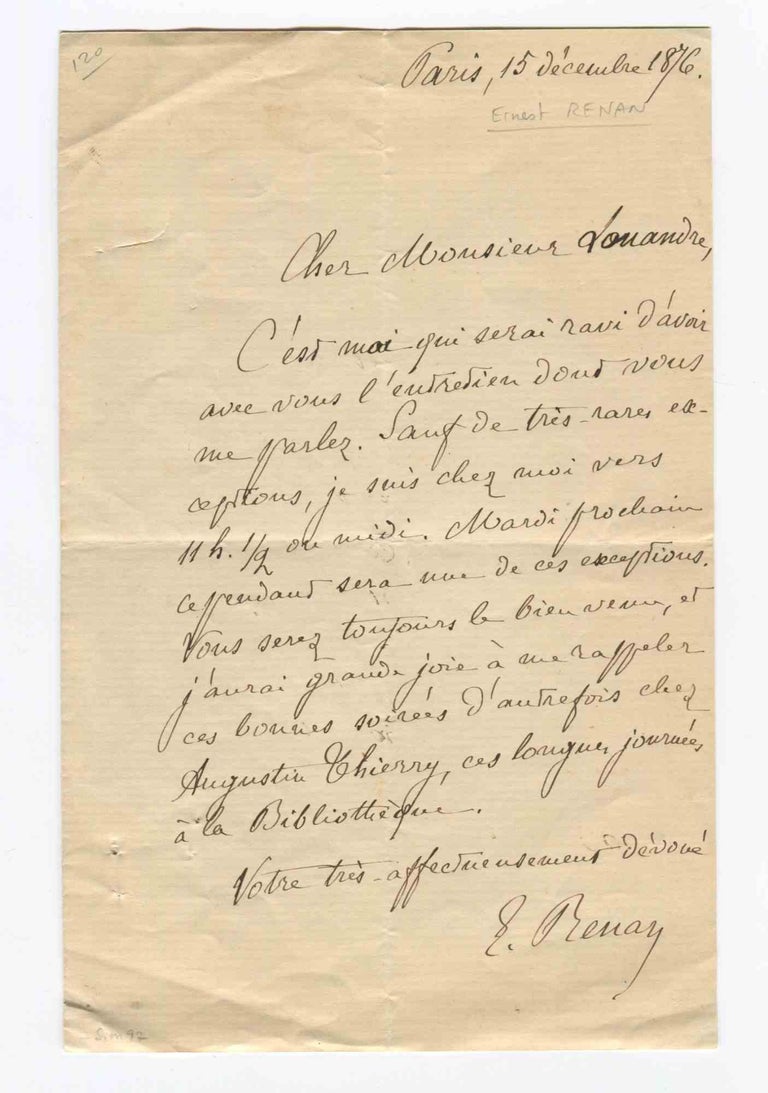 120
Paris, 15 décembre 1876.
Ernest RENAN
Cher Monsieur Louandre,
C'est moi qui serai ravi d'avoir
avec vous l'entretien dont vous
me parlez. Sauf de très-rares ex-
ceptions, je suis chez moi vers
11 h. 1/2 ou midi. Mardi prochain
cependant sera une de ces exceptions.
Vous serez toujours le bien venu, et
j'aurai grande joie à me rappeler
ces bonnes soirées d'autrefois chez
Augustin Thierry, ces longues journées
à la Bibliothèque.
Votre très-affectueusement dévoué
E. Renan